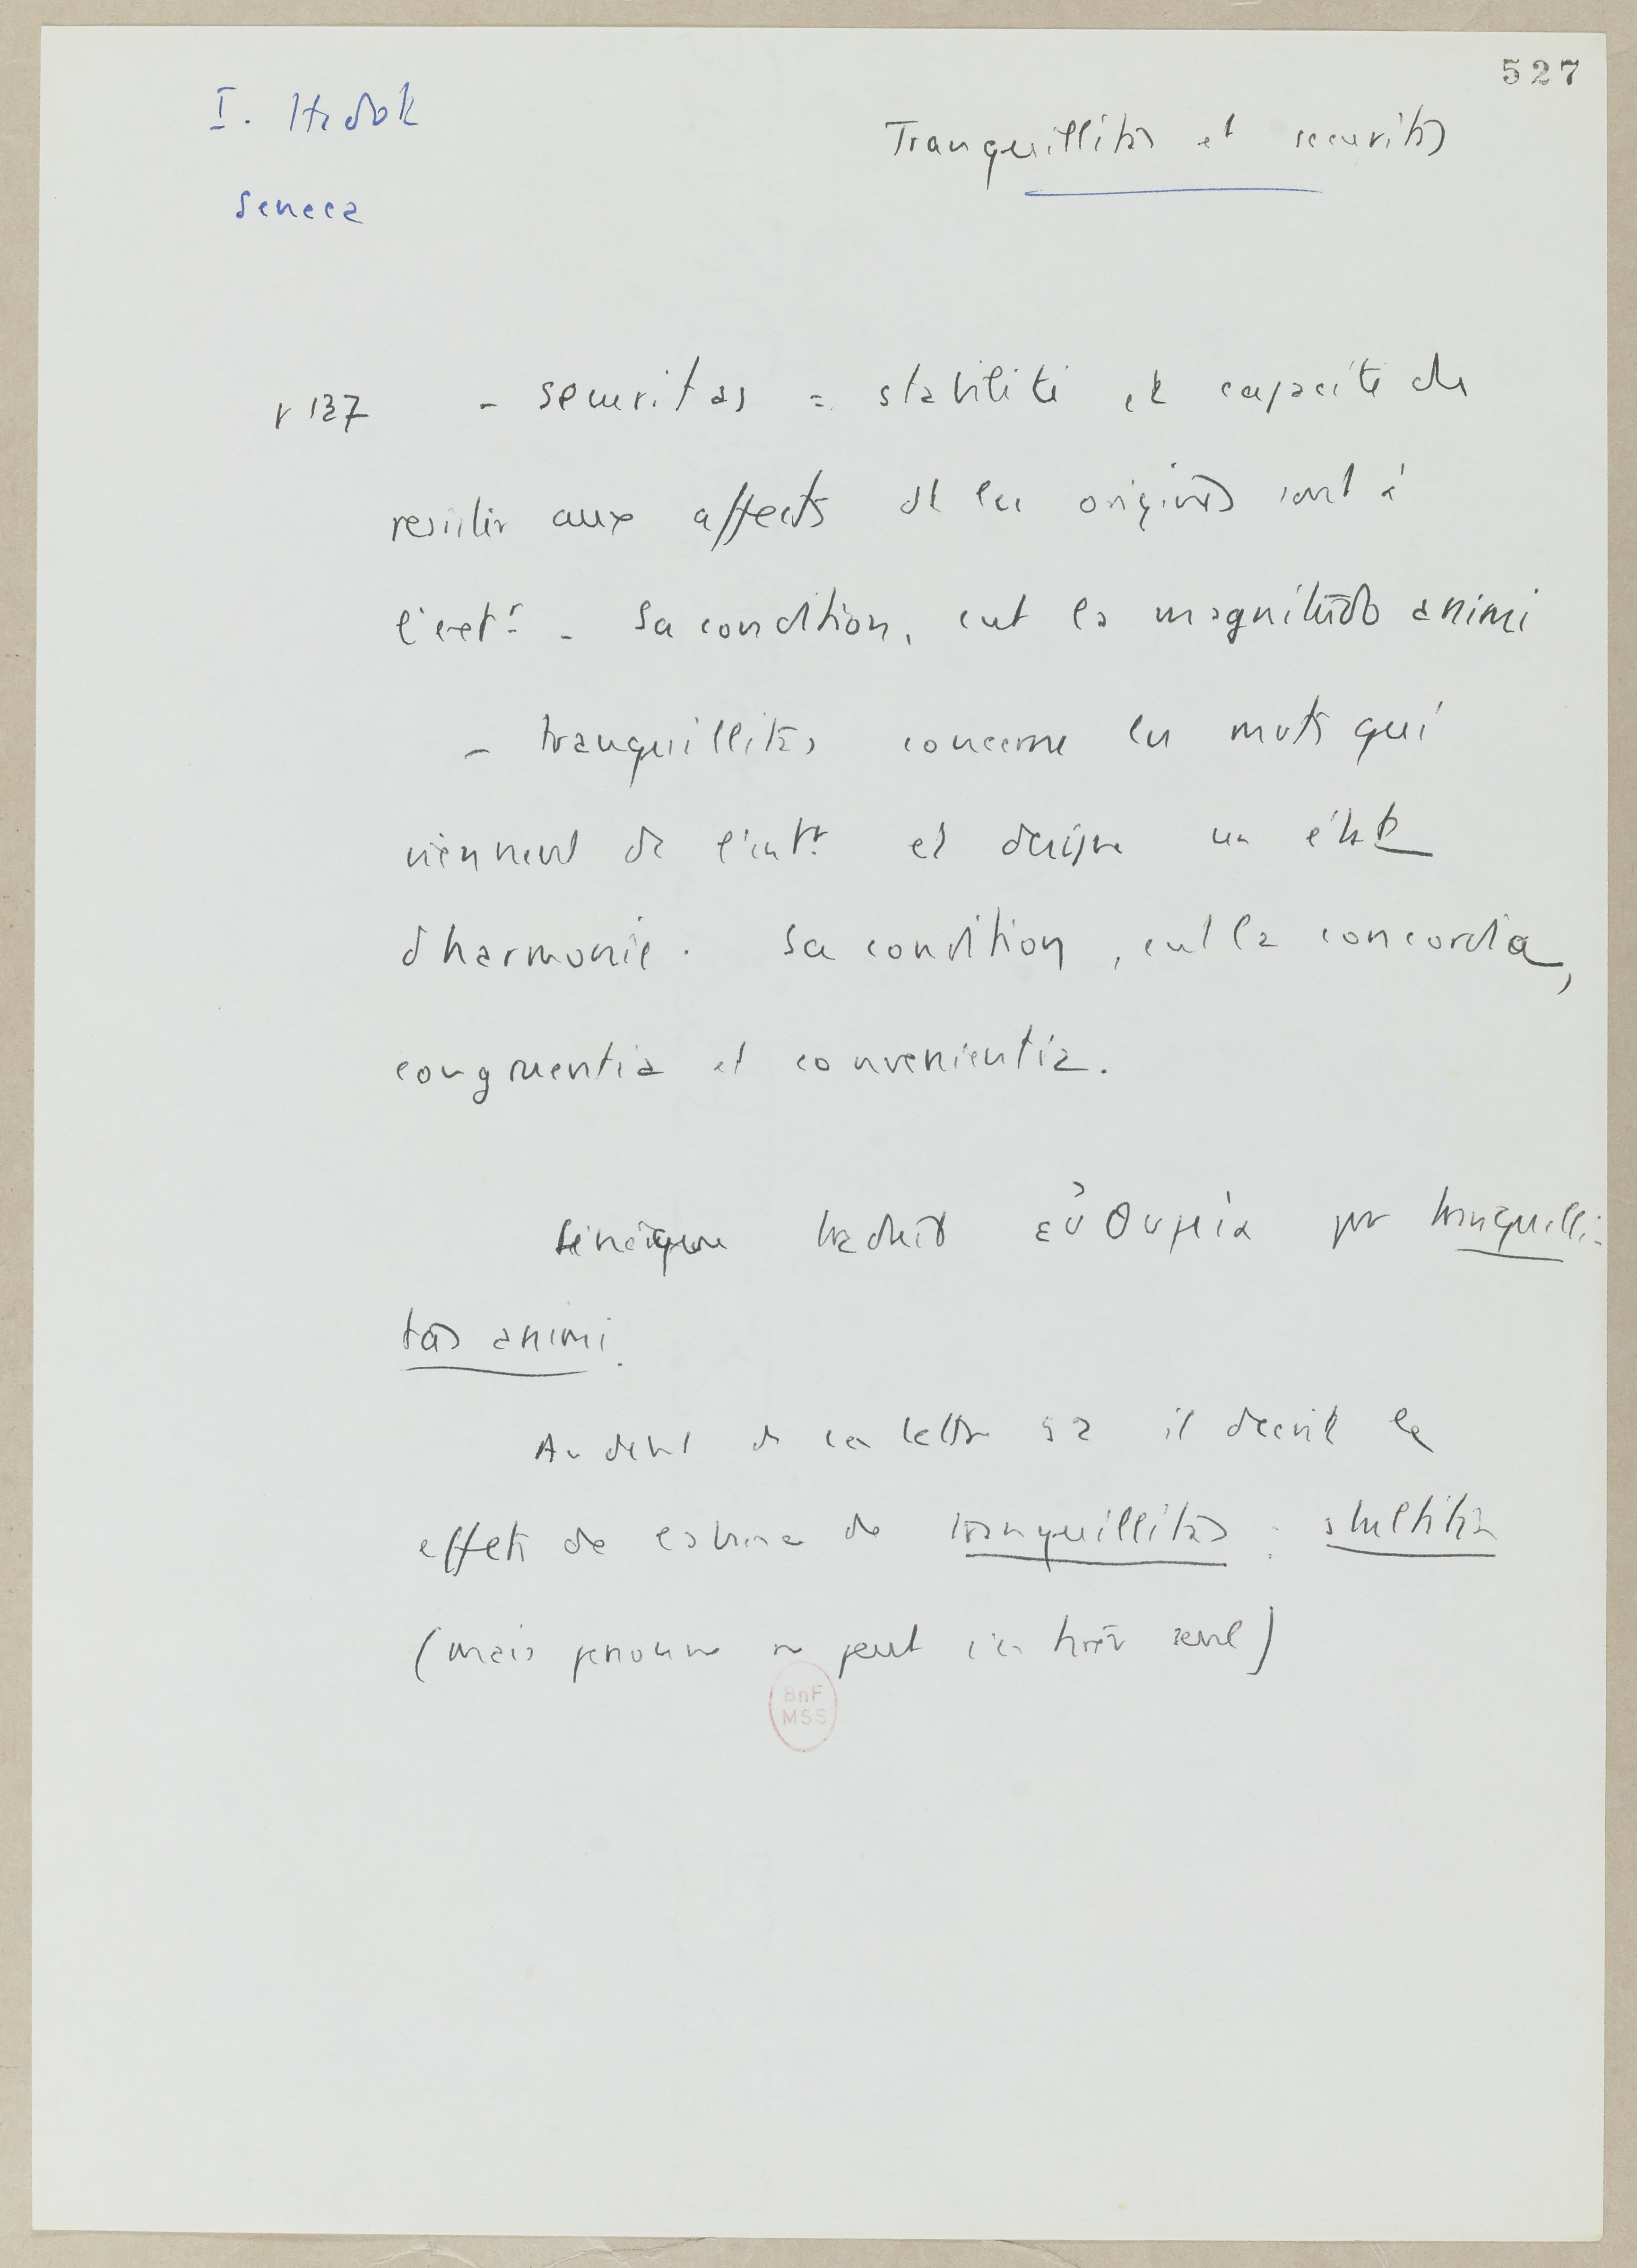 527
I. Hadot
Tranquillitas et securitas
Seneca
p 137 - securitas = stabilité et capacité de
resister aux affects dt les origines sont à
l'extr. - Sa condition, c'est la magnitudo animi
- tranquillitas concerne les mvts qui
viennent de l'intr et designe un état
d'harmonie. Sa condition, c'est la concordia,
congruentia et convenientia.
Sénèque traduit εὐθυμία par tranquilli-
tas animi.
Au début de la lettre 52 il decrit les
effets de l'absence de tranquillitas : stultitia
(mais personne ne peut s'en tirer seul)
BnF
MSS